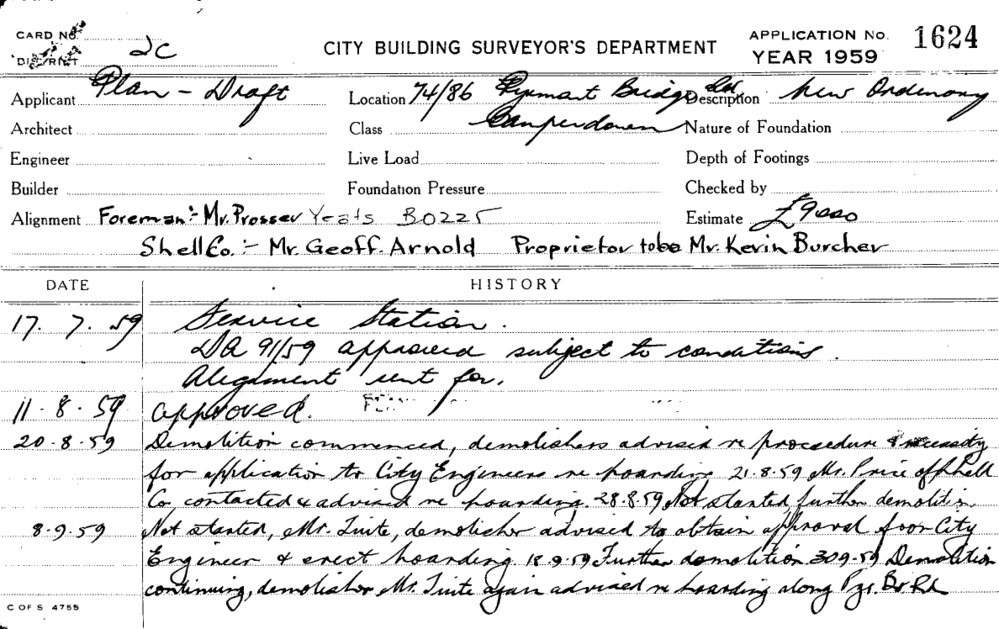 CARD No. CITY BUILDING SURVEYOR'S DEPARTMENT APPLICATION No. 1624
DISTRICT 2C YEAR 1959
Applicant Plan - Draft Location 74/86 Pyrmont Bridge Rd Description New Ordinary
Architect Class Camperdown Nature of Foundation
Engineer Live Load Depth of Footings
Builder Foundation Pressure Checked by
Alignment Foreman:- Mr. Prosser Yeats B0225 Estimate £9000
Shell Co. :- Mr. Geoff. Arnold Proprietor to be Mr. Kevin Burcher
DATE HISTORY
17. 7. 59 Service Station.
DA 91/59 approved subject to conditions.
Alignment sent for.
11. 8. 59 approved.
20. 8. 59 Demolition commenced, demolishers advised re procedure & necessity
for application to City Engineers re hoarding 21.8.59 Mr. Price of Shell
Co contacted & advised re hoarding. 28.8.59 Not started, further demolition
8. 9. 59 Not started, Mr. Tuite, demolisher advised to obtain approval from City
Engineer & erect hoarding 18.9.59 Further demolition 30.9.59 Demolition
continuing, demolisher Mr. Tuite again advised re hoarding along Pyr. Br Rd
C OF S 4755